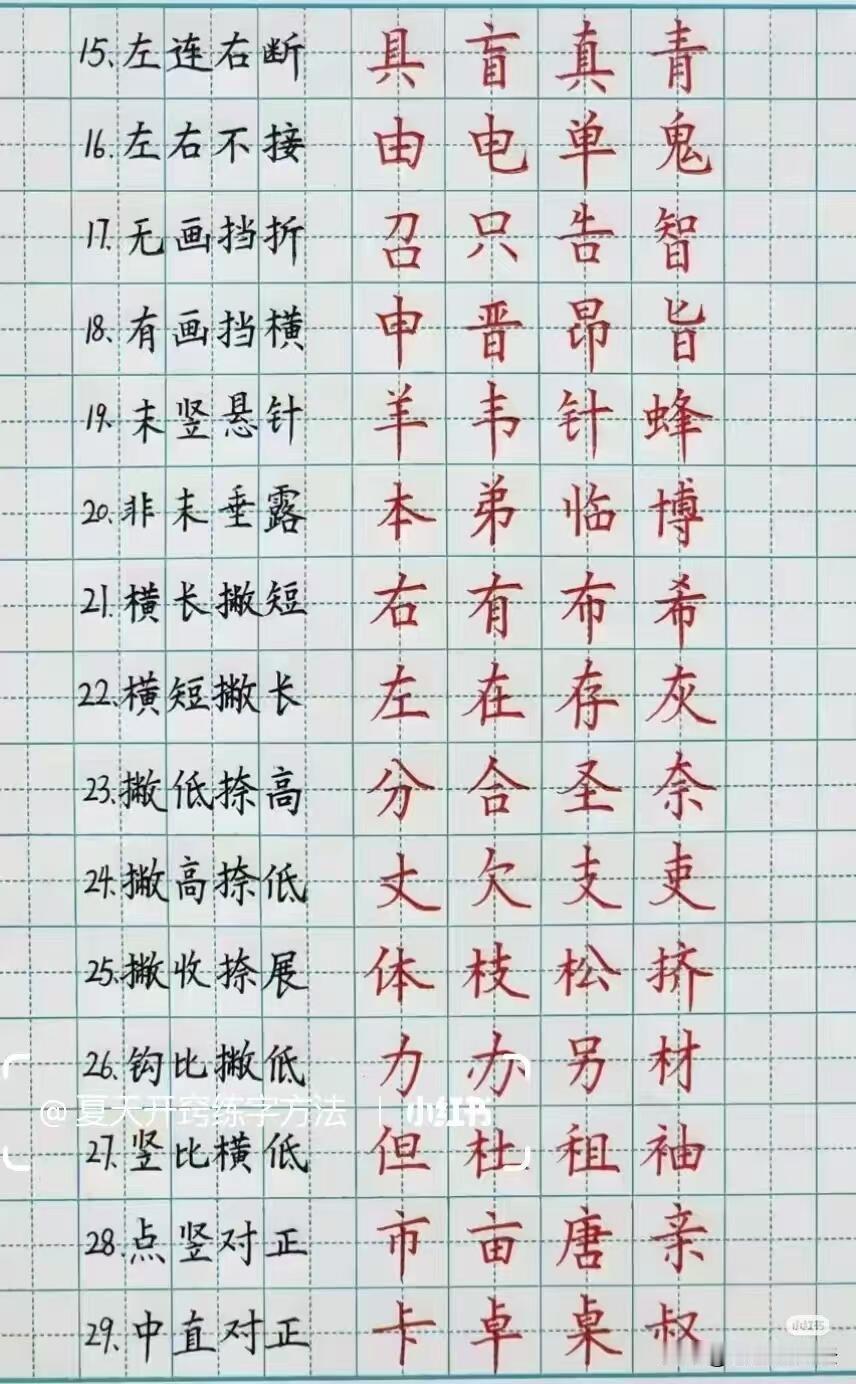 15.左连右断 具盲真青
16.左右不接 由电单鬼
17.无画挡折 召只告智
18.有画挡横 申晋昂旨
19.末竖悬针 羊韦针蜂
20.非末垂露 本弟临博
21.横长撇短 右有布希
22.横短撇长 左在存灰
23.撇低捺高 分合圣奈
24.撇高捺低 丈欠支吏
25.撇收捺展 体枝松挤
26.钩比撇低 力办另材
@夏天开窍练字方法 | 小红书
27.竖比横低 但杜租袖
28.点竖对正 市亩唐亲
29.中直对正 卡卓桌叔
小红书